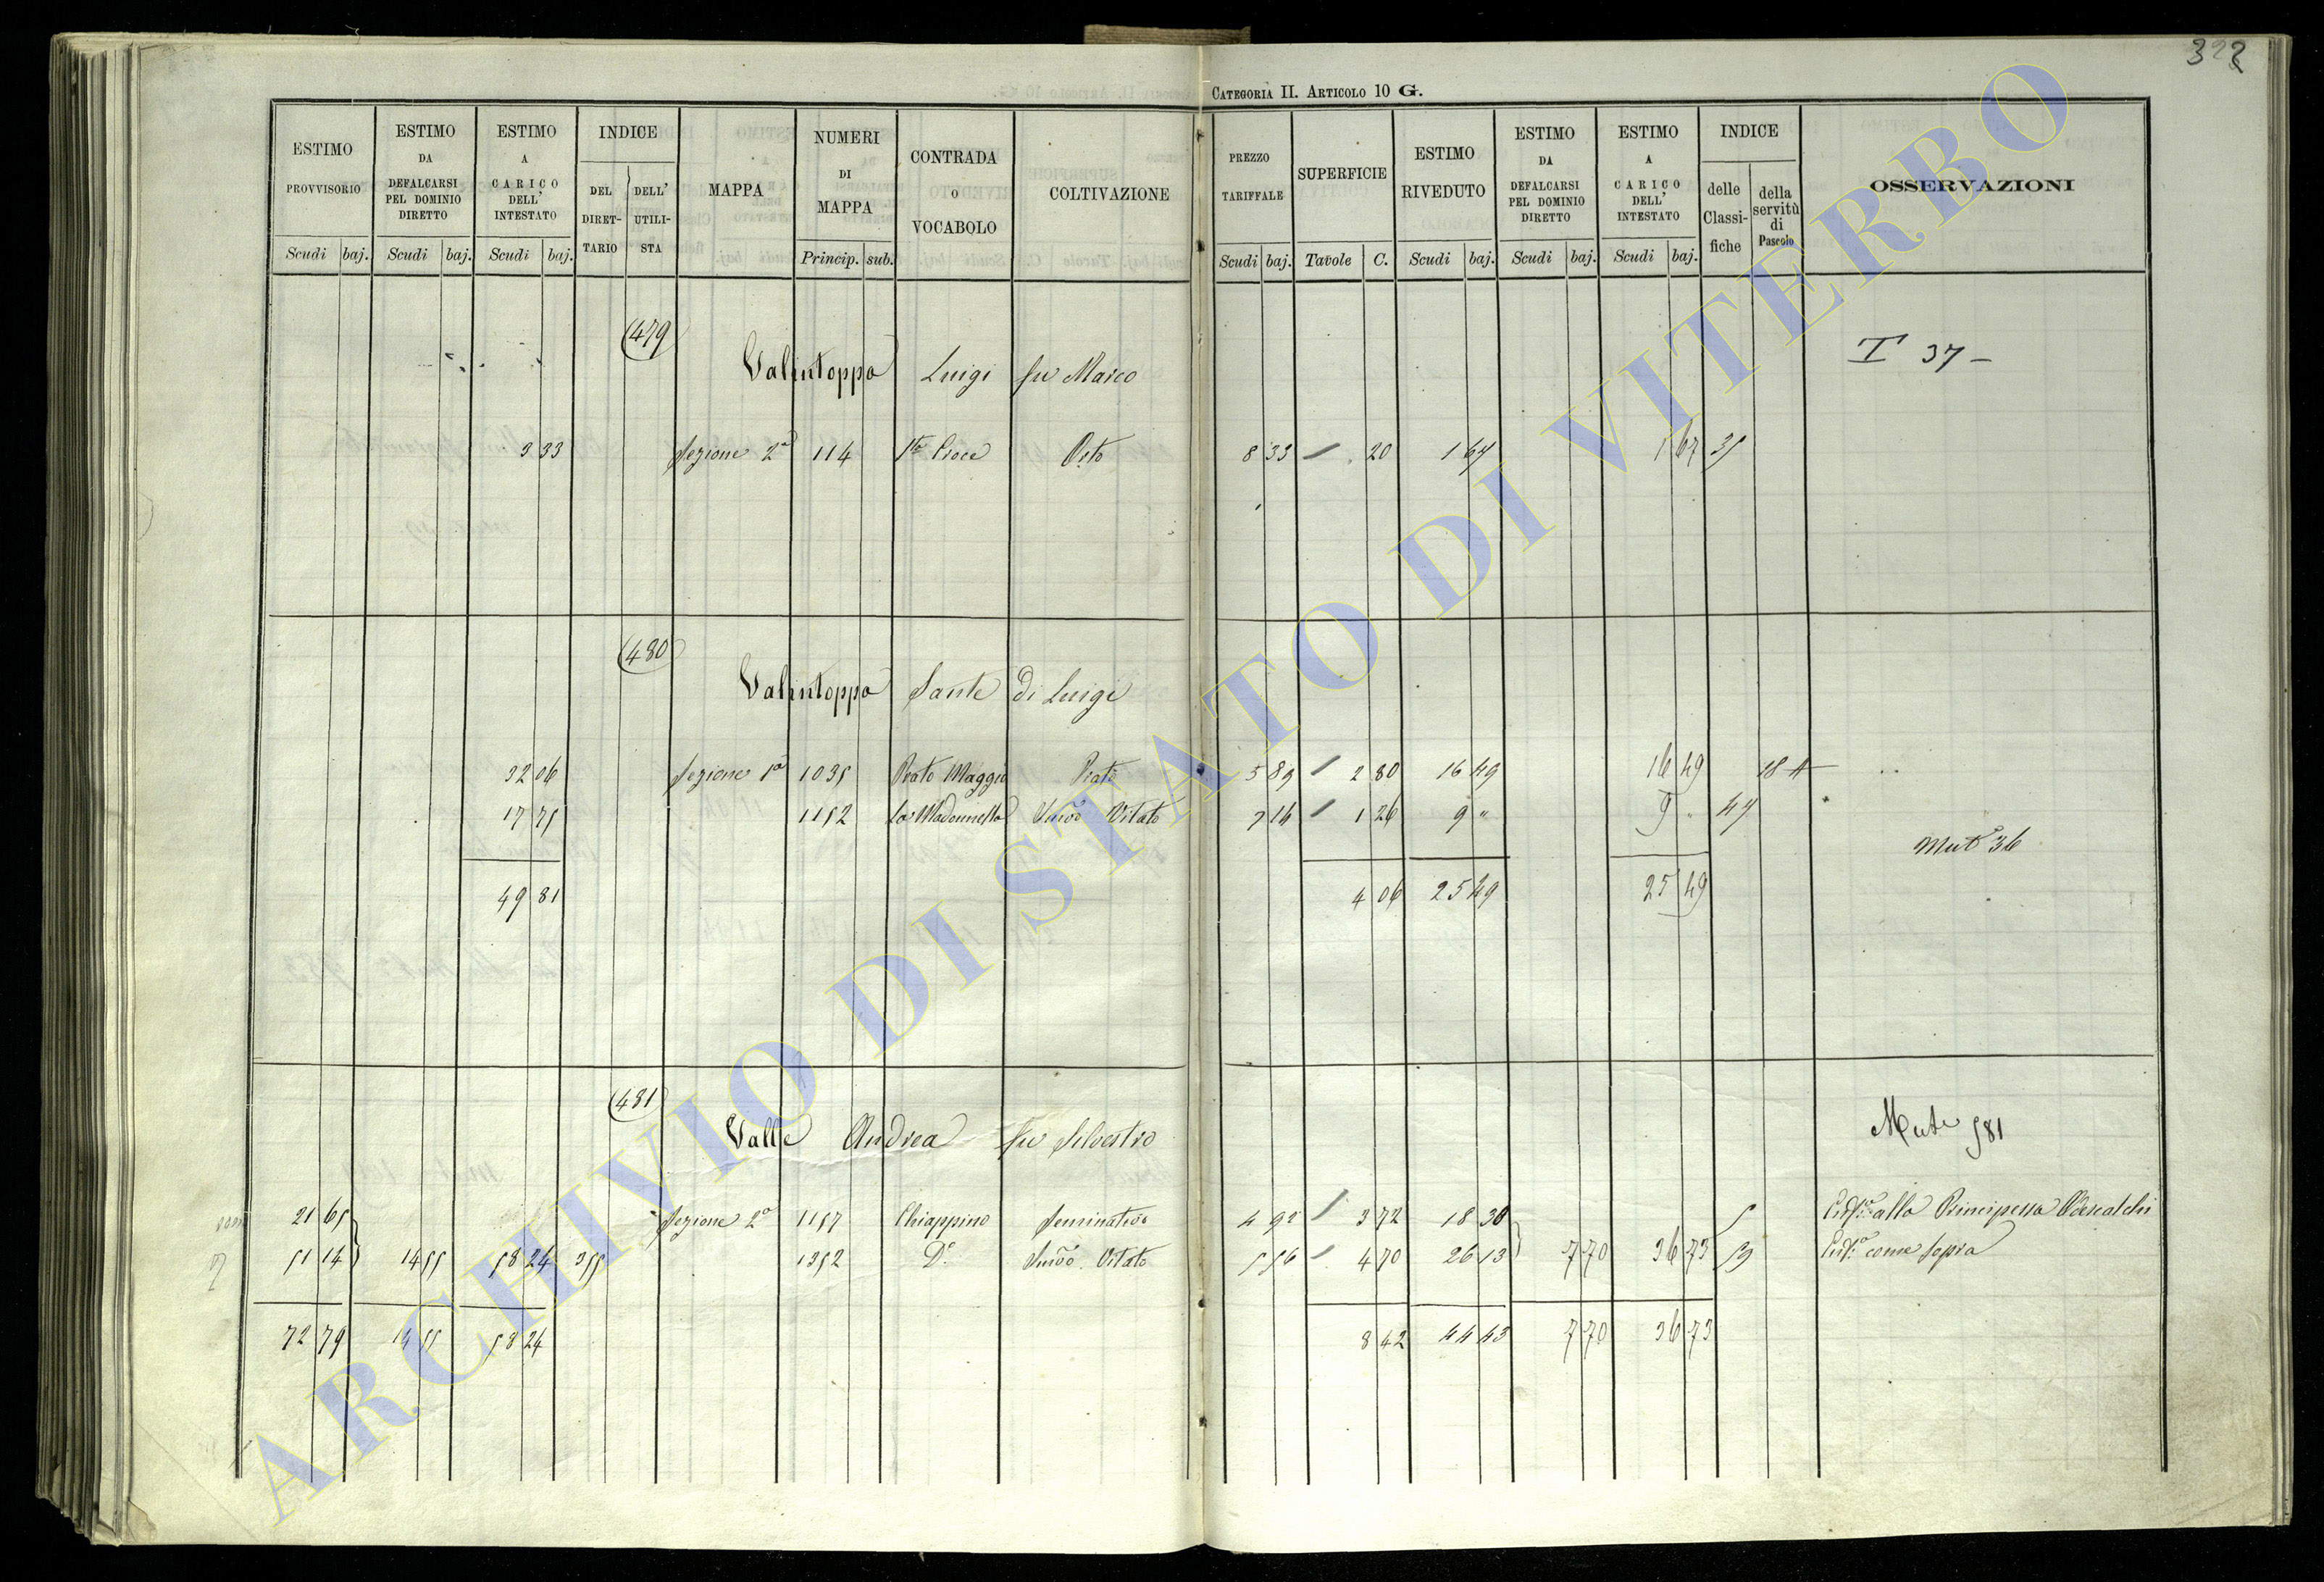 322
CATEGORIA II. ARTICOLO 10 G.
ESTIMO PROVVISORIO Scudi baj.
ESTIMO DA DEFALCARSI PEL DOMINIO DIRETTO Scudi baj.
ESTIMO A CARICO DELL' INTESTATO Scudi baj.
INDICE DEL DIRET-TARIO DELL' UTILI-STA
MAPPA
NUMERI DI MAPPA Princip. sub.
CONTRADA O VOCABOLO
COLTIVAZIONE
PREZZO TARIFFALE Scudi baj.
SUPERFICIE Tavole C.
ESTIMO RIVEDUTO Scudi baj.
ESTIMO DA DEFALCARSI PEL DOMINIO DIRETTO Scudi baj.
ESTIMO A CARICO DELL' INTESTATO Scudi baj.
INDICE delle Classi-fiche della servitù di Pascolo
OSSERVAZIONI
479
Valintoppa Luigi fu Marco I 37 –
3 33 Sezione 2a 114 Sta Croce Orto 8 33 20 1 67 1 67 35
480
Valintoppa Sante di Luigi
32 06 Sezione 1a 1035 Prato Maggio Prato 5 89 2 80 16 49 16 49 18 A
17 75 1152 La Madonnella Semvo Vitato 7 14 1 26 9 " 9 " 47
Muta 36
49 81 4 06 25 49 25 49
481
Valle Andrea fu Silvestro Muta 581
21 65 Sezione 2a 1157 Chiappino Seminativo 4 92 3 72 18 30 5 alla Principessa Odescalchi
51 14 14 55 58 24 355 1352 Do Semvo Vitato 5 56 4 70 26 13 7 70 36 73 come sopra
72 79 14 55 58 24 8 42 44 43 7 70 36 73
ARCHIVIO DI STATO DI VITERBO